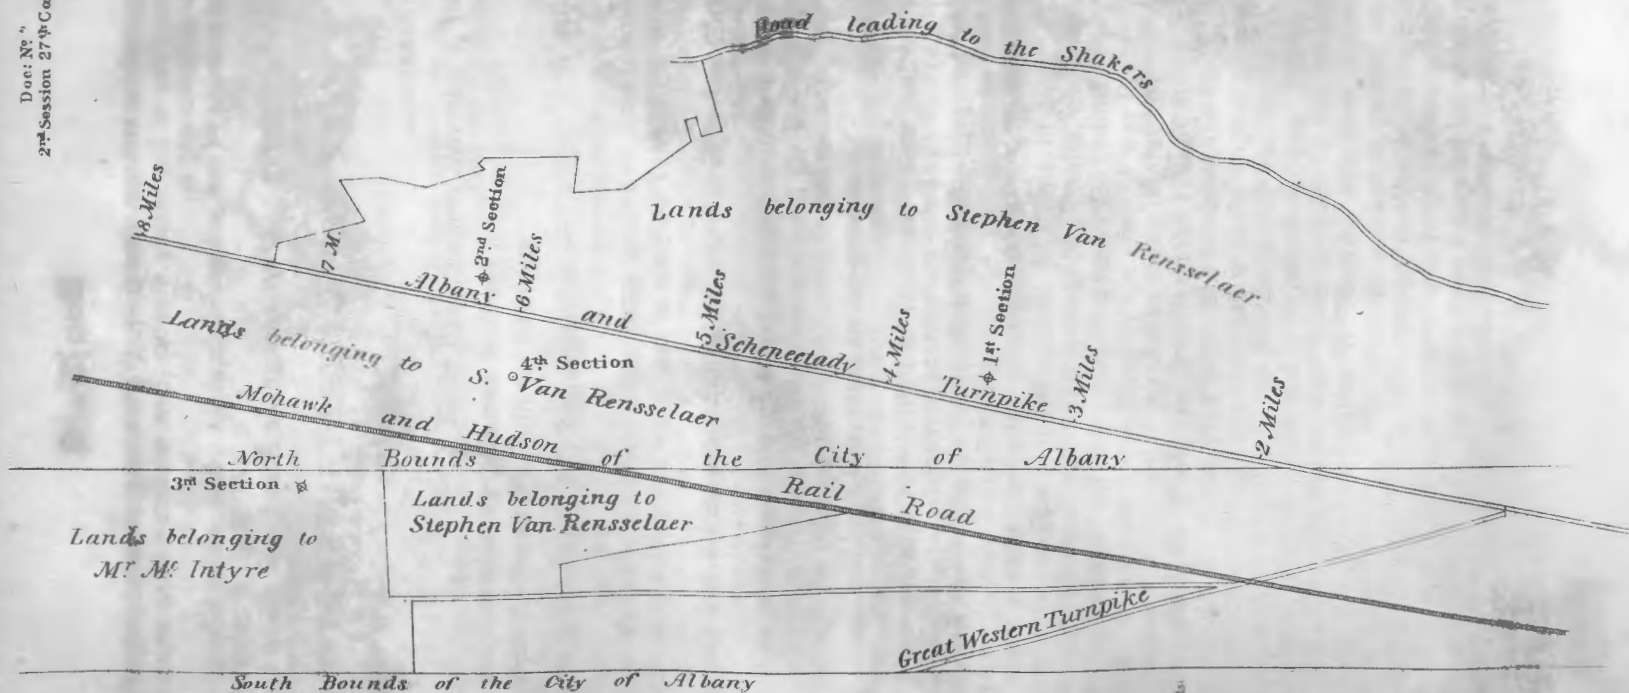 Doc: No.
2nd Session 27th
Road leading to the Shakers
8 Miles
7 M.
2nd Section
6 Miles
Lands belonging to Stephen Van Rensselaer
5 Miles
4 Miles
1st Section
3 Miles
2 Miles
Albany and Schenectady Turnpike
Lands belonging to S. Van Rensselaer
4th Section
Mohawk and Hudson Rail Road
North Bounds of the City of Albany
3rd Section
Lands belonging to
Stephen Van Rensselaer
Lands belonging to
Mr Mc Intyre
Great Western Turnpike
South Bounds of the City of Albany